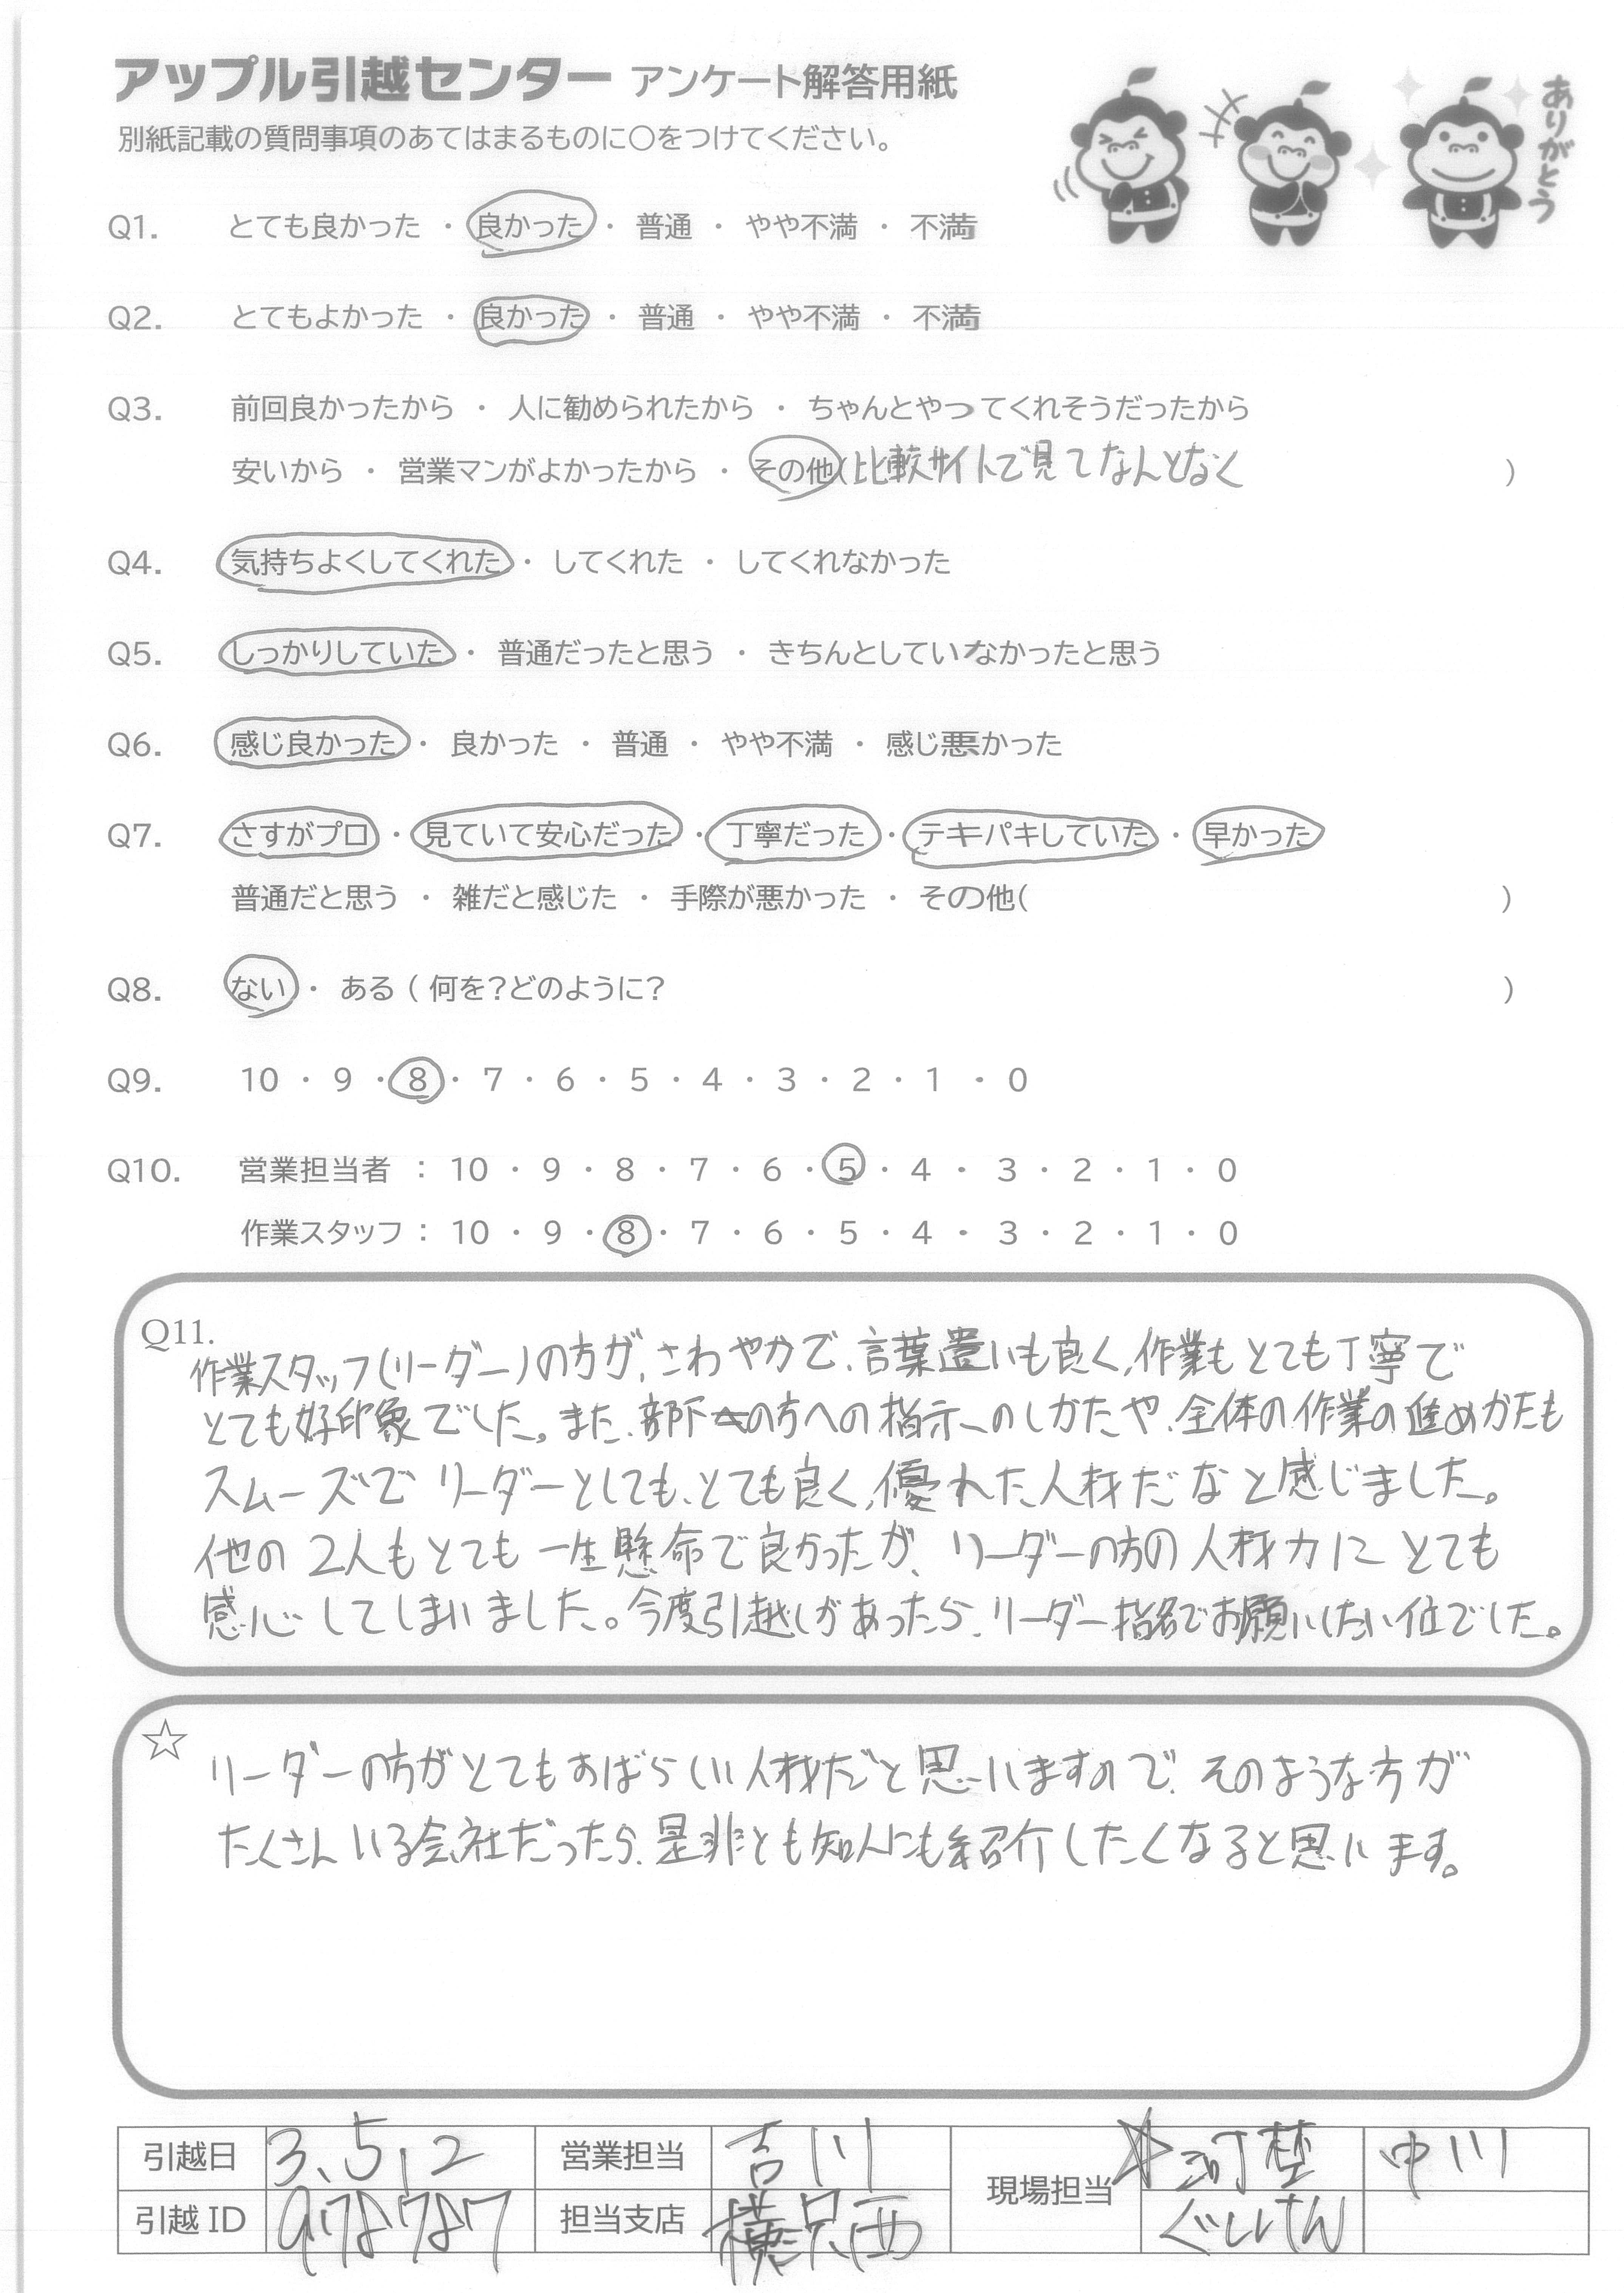 アップル引越センター アンケート解答用紙
ありがとう
別紙記載の質問事項のあてはまるものに○をつけてください。
Q1. とても良かった ・ 良かった ・ 普通 ・ やや不満 ・ 不満
Q2. とてもよかった ・ 良かった ・ 普通 ・ やや不満 ・ 不満
Q3. 前回良かったから ・ 人に勧められたから ・ ちゃんとやってくれそうだったから
安いから ・ 営業マンがよかったから ・ その他(比較サイトで見てなんとなく )
Q4. 気持ちよくしてくれた ・ してくれた ・ してくれなかった
Q5. しっかりしていた ・ 普通だったと思う ・ きちんとしていなかったと思う
Q6. 感じ良かった ・ 良かった ・ 普通 ・ やや不満 ・ 感じ悪かった
Q7. さすがプロ ・ 見ていて安心だった ・ 丁寧だった ・ テキパキしていた ・ 早かった
普通だと思う ・ 雑だと感じた ・ 手際が悪かった ・ その他( )
Q8. ない ・ ある ( 何を?どのように? )
Q9. 10 ・ 9 ・ 8 ・ 7 ・ 6 ・ 5 ・ 4 ・ 3 ・ 2 ・ 1 ・ 0
Q10. 営業担当者 : 10 ・ 9 ・ 8 ・ 7 ・ 6 ・ 5 ・ 4 ・ 3 ・ 2 ・ 1 ・ 0
作業スタッフ : 10 ・ 9 ・ 8 ・ 7 ・ 6 ・ 5 ・ 4 ・ 3 ・ 2 ・ 1 ・ 0
Q11.
作業スタッフ(リーダー)の方が、さわやかで、言葉遣いも良く、作業もとても丁寧で
とても好印象でした。また、部下の方への指示のしかたや、全体の作業の進めかたも
スムーズでリーダーとしても、とても良く、優れた人材だなと感じました。
他の2人もとても一生懸命で良かったが、リーダーの方の人材力にとても
感心してしまいました。今度引越しがあったら、リーダー指名でお願いしたい位でした。
☆ リーダーの方がとてもすばらしい人材だと思いますので、そのような方が
たくさんいる会社だったら、是非とも知人にも紹介したくなると思います。
引越日 3.5.2 営業担当 吉川 現場担当 ☆河埜 中川
引越ID 978787 担当支店 横浜西 ぐしけん